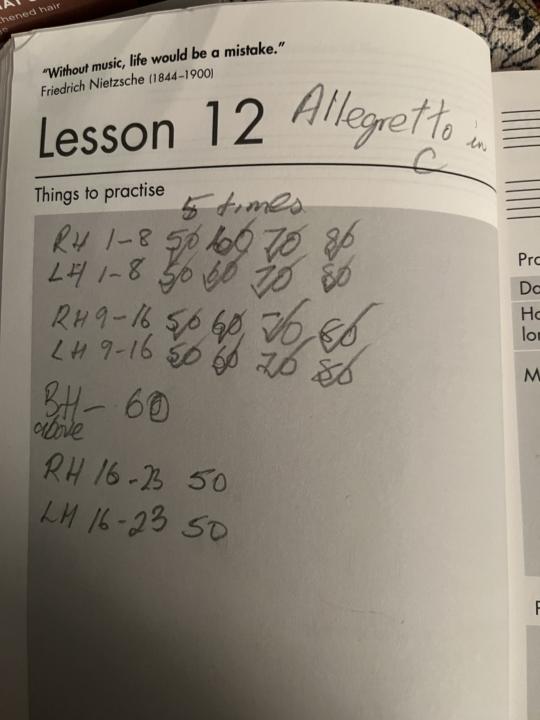 chened hair
"Without music, life would be a mistake."
Friedrich Nietzsche (1844–1900)
Lesson 12 Allegretto in C
Things to practise
5 times
RH 1-8 50 60 70 80
LH 1-8 50 60 70 80
RH 9-16 50 60 70 80
LH 9-16 50 60 70 80
BH- 60
above
RH 16-23 50
LH 16-23 50